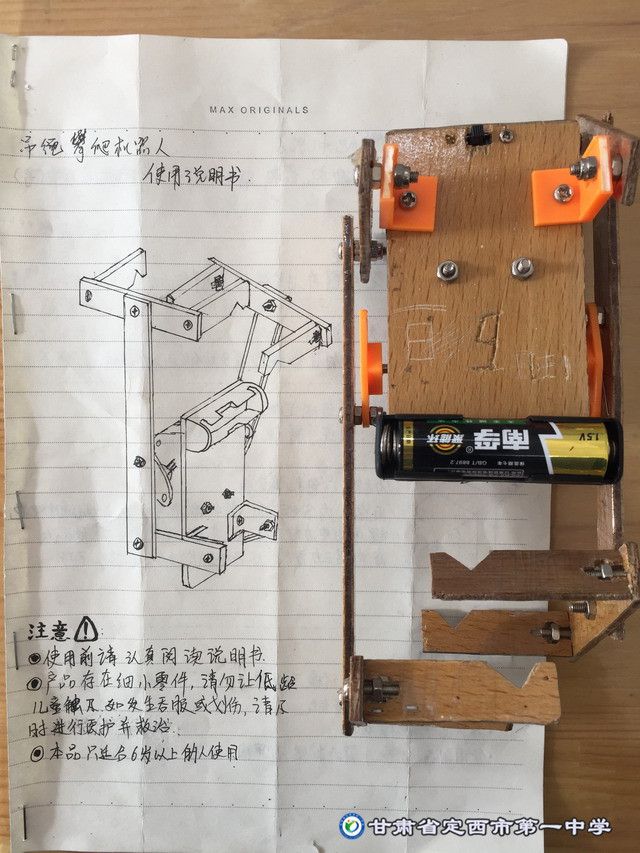 MAX ORIGINALS
吊绳攀爬机器人
使用说明书.
注意
使用前请认真阅读说明书.
产品存在细小零件,请勿让低龄
儿童触及.如发生吞服或划伤,请及
时进行医护并救治.
本品只适合6岁以上的人使用
南孚
聚能环
1.5V
GB/T 8897.2
甘肃省定西市第一中学